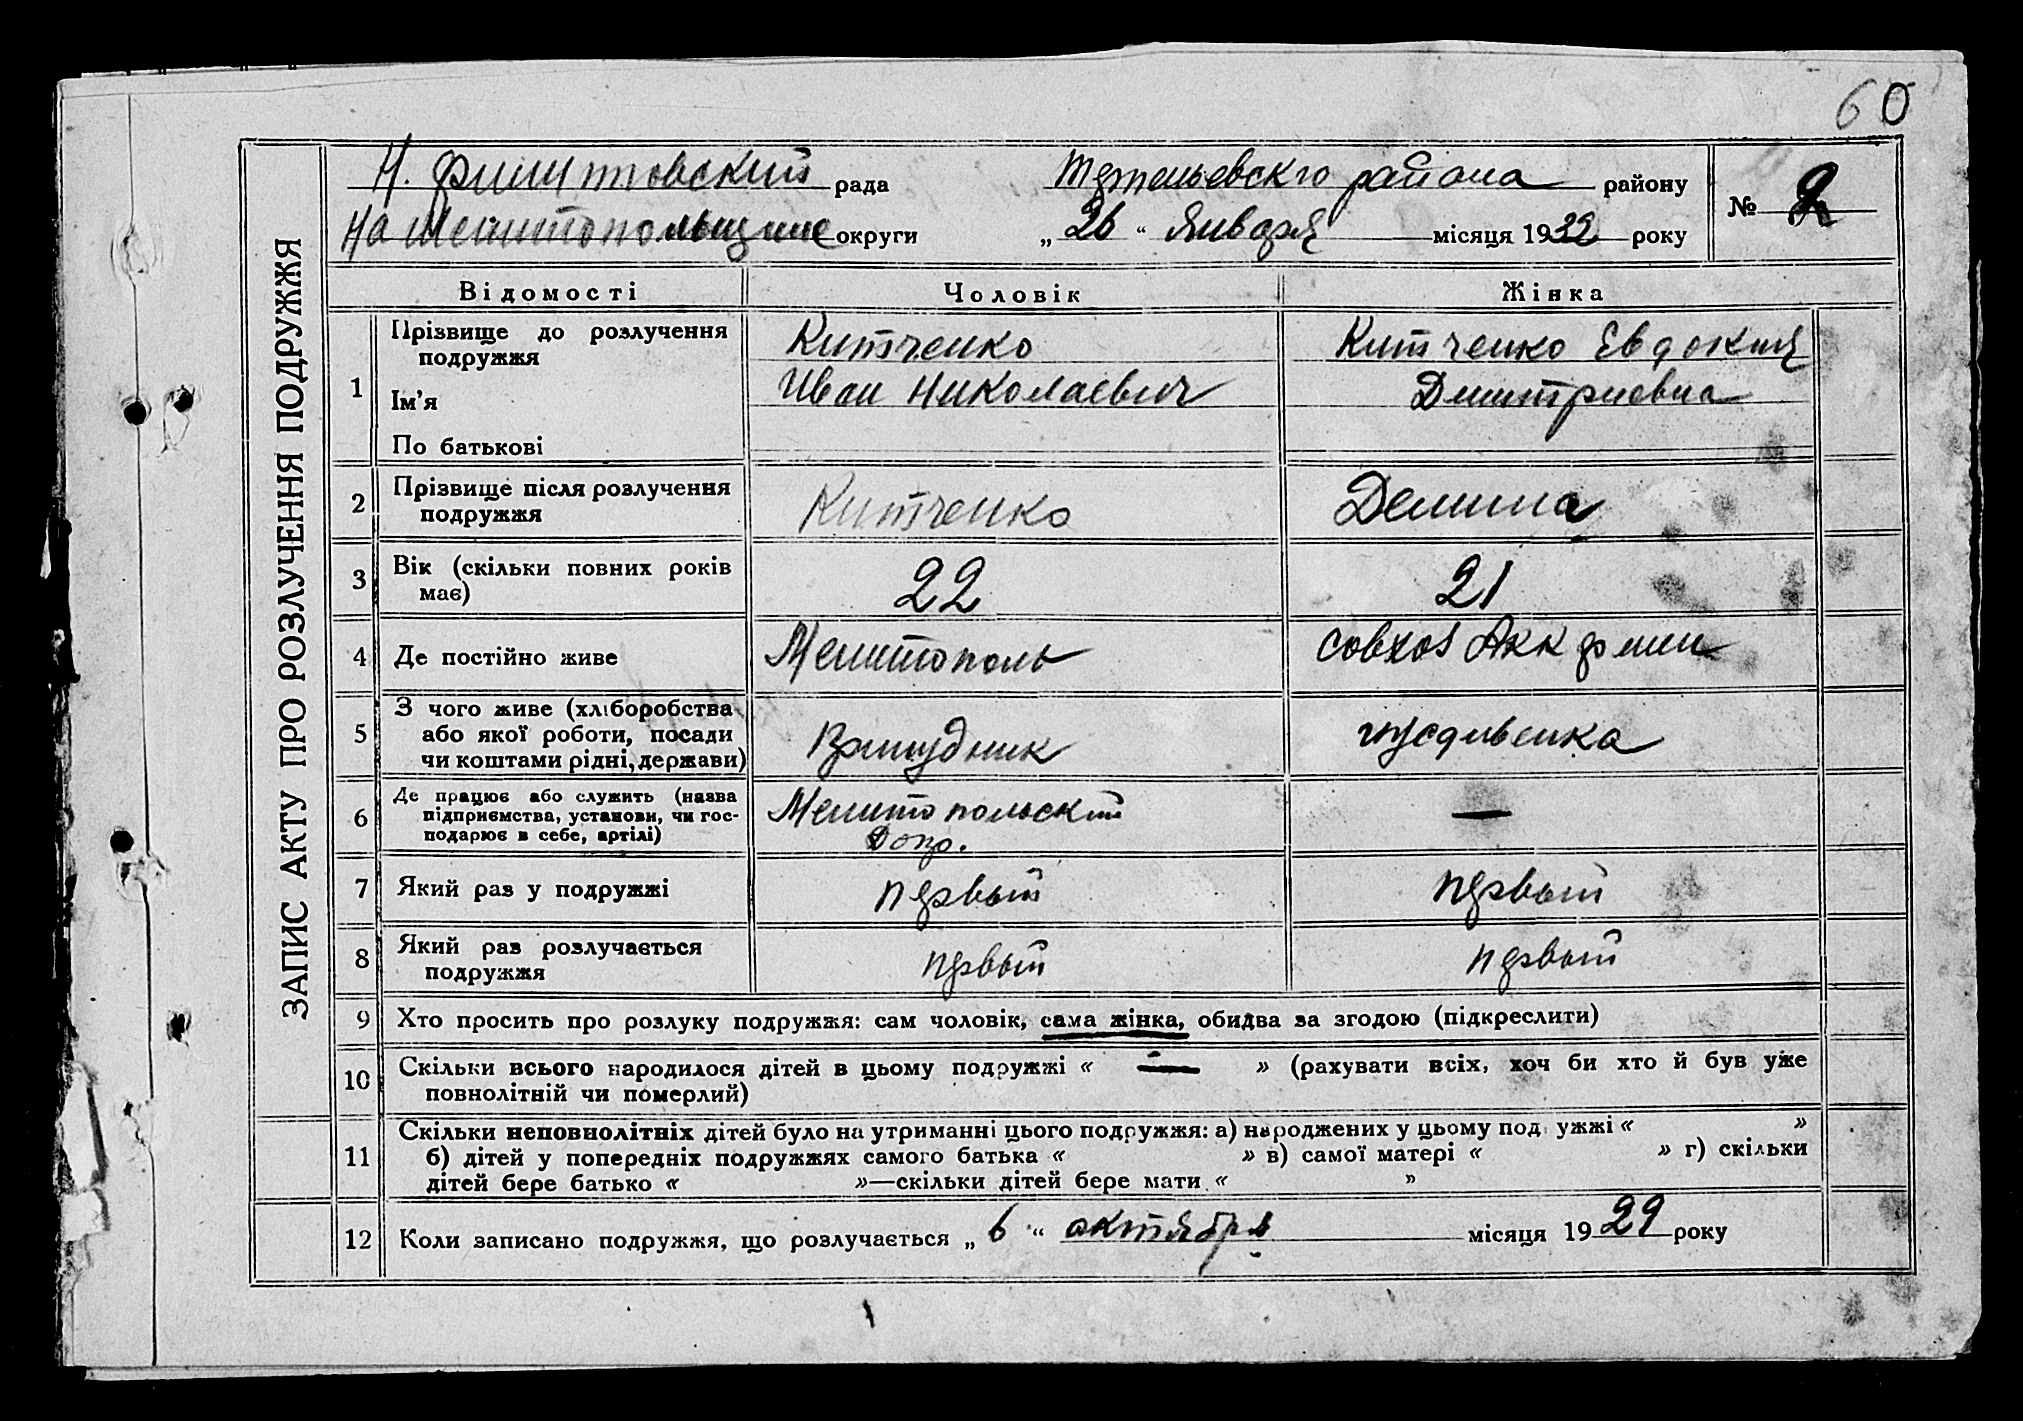 60
ЗАПИС АКТУ ПРО РОЗЛУЧЕННЯ ПОДРУЖЖЯ
рада района району
На Мелитопольщине округи „ 26 “ Января місяця 1932 року
№ 2
Відомості Чоловік Жінка
1 Прізвище до розлучення подружжя Китченко Китченко Евдокия
Ім’я Иван Николаевич Дмитриевна
По батькові
2 Прізвище після розлучення подружжя Китченко Демина
3 Вік (скільки повних років має) 22 21
4 Де постійно живе Мелитополь совхоз Аккермен
5 З чого живе (хліборобства або якої роботи, посади чи коштами рідні, держави)
6 Де працює або служить (назва підприємства, установи, чи господарює в себе, артілі) Мелитопольский Допр. —
7 Який раз у подружжі первый первый
8 Який раз розлучається подружжя первый первый
9 Хто просить про розлуку подружжя: сам чоловік, сама жінка, обидва за згодою (підкреслити)
10 Скільки всього народилося дітей в цьому подружжі « — » (рахувати всіх, хоч би хто й був уже
повнолітній чи померлий)
11 Скільки неповнолітніх дітей було на утриманні цього подружжя: а) народжених у цьому подружжі « »
б) дітей у попередніх подружжях самого батька « » в) самої матері « » г) скільки
дітей бере батько « »—скільки дітей бере мати « »
12 Коли записано подружжя, що розлучається „ 6 “ октября місяця 1929 року